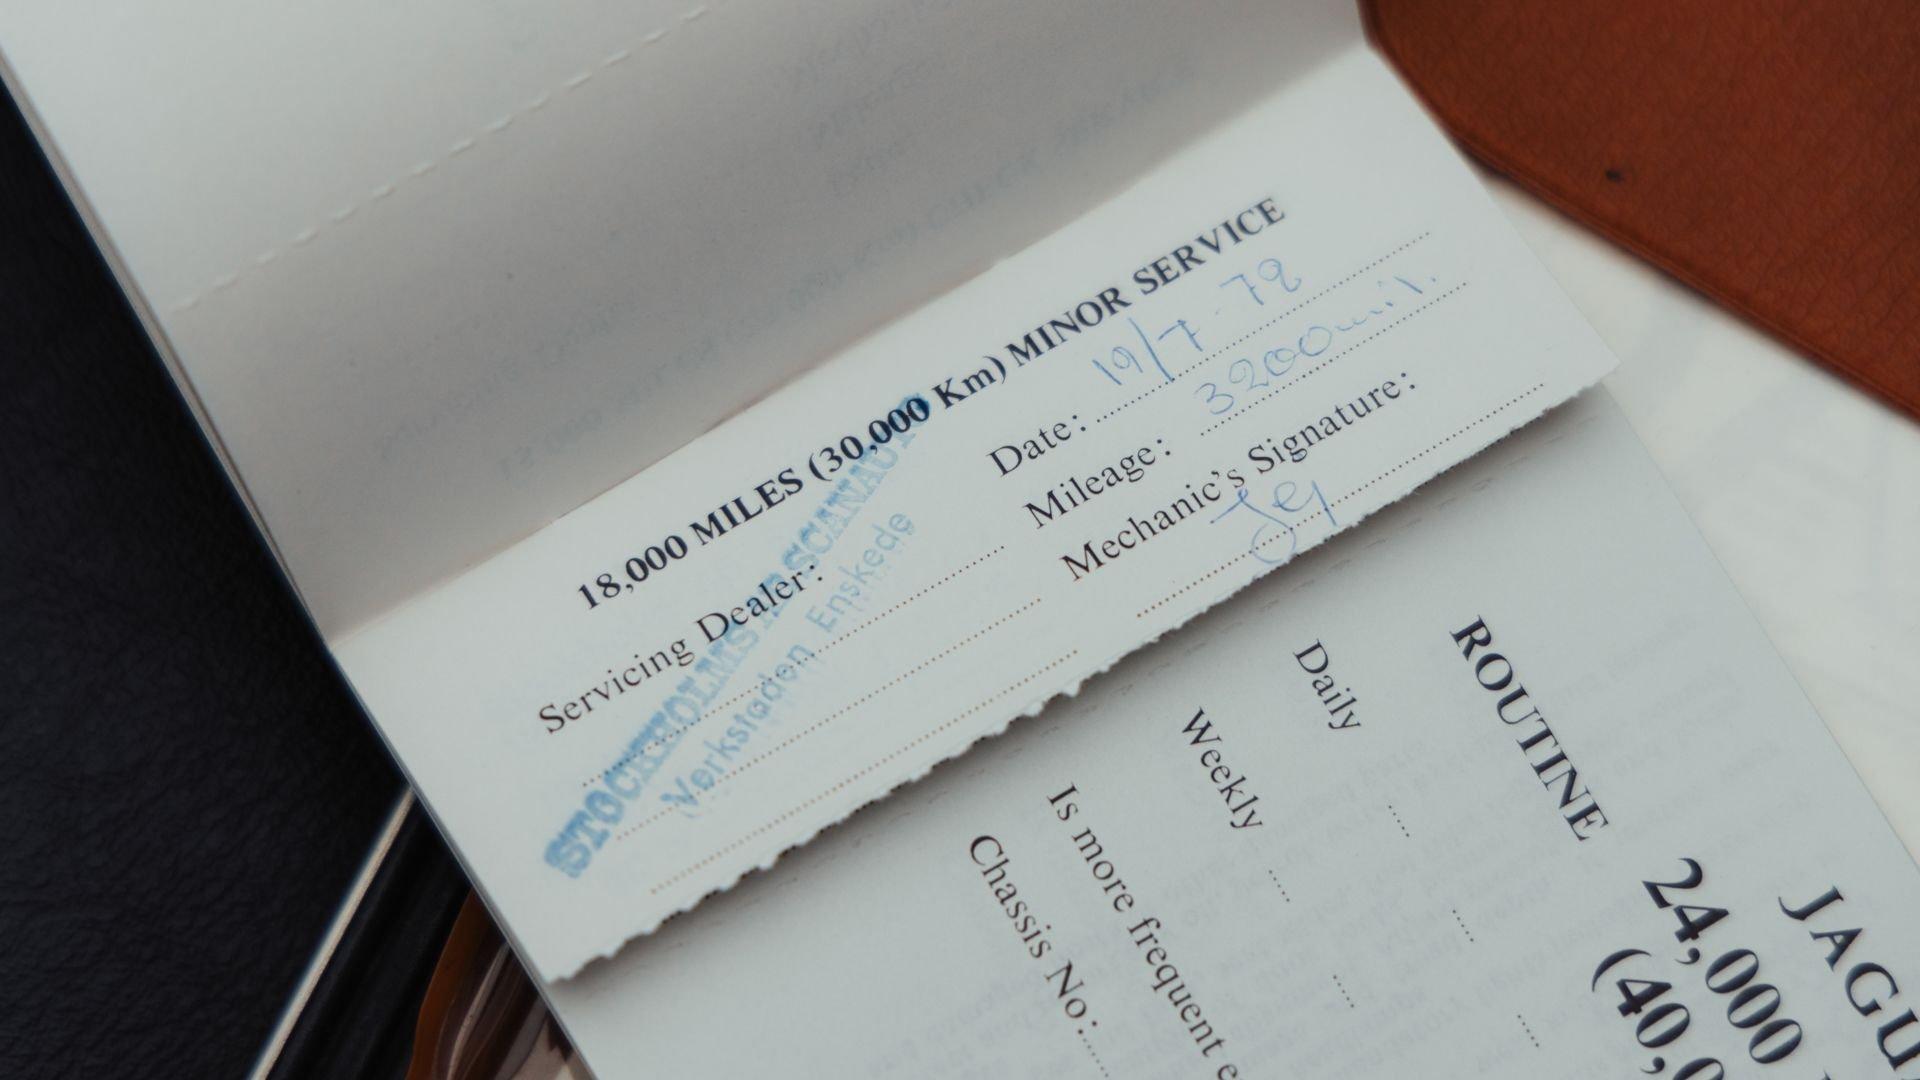 18,000 MILES (30,000 Km) MINOR SERVICE
Servicing Dealer:
STOCKHOLMS AB SCANIAUTO
Verkstaden Enskede
Date: 19/7-72
Mileage: 3200 mil.
Mechanic's Signature:
JAGU
24,000
(40,0
ROUTINE
Daily
Weekly
Is more frequent e
Chassis No: